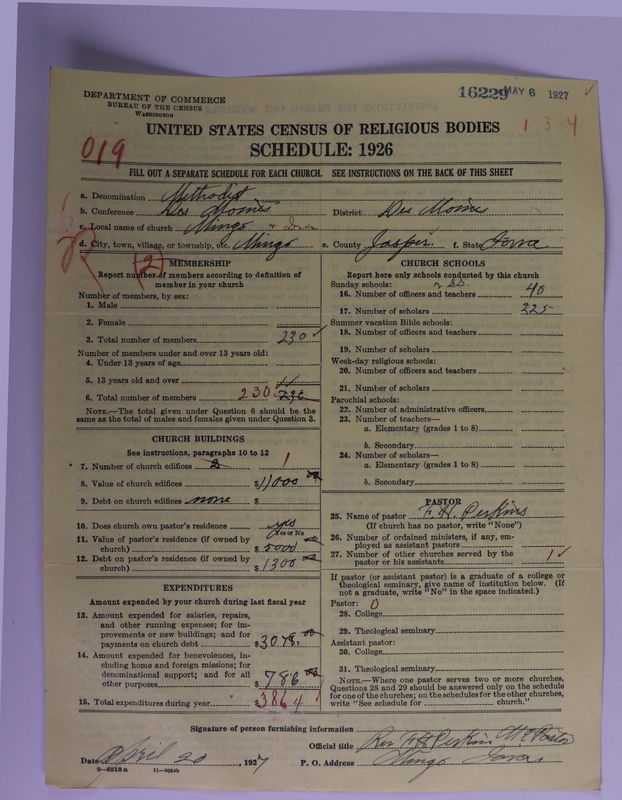 DEPARTMENT OF COMMERCE
BUREAU OF THE CENSUS
WASHINGTON
16229 MAY 6 1927
UNITED STATES CENSUS OF RELIGIOUS BODIES
1 3 4
SCHEDULE: 1926
019
FILL OUT A SEPARATE SCHEDULE FOR EACH CHURCH. SEE INSTRUCTIONS ON THE BACK OF THIS SHEET
a. Denomination Methodist
b. Conference Des Moines District Des Moines
c. Local name of church Mingo
d. City, town, village, or township, etc. Mingo e. County Jasper f. State Iowa
(2)
MEMBERSHIP
Report number of members according to definition of
member in your church
Number of members, by sex:
1. Male
2. Female
3. Total number of members 230
Number of members under and over 13 years old:
4. Under 13 years of age
5. 13 years old and over
6. Total number of members 230 230
NOTE.—The total given under Question 6 should be
same as the total of males and females given under Question 3.
CHURCH BUILDINGS
See instructions, paragraphs 10 to 12
7. Number of church edifices 2 1
8. Value of church edifices $11000 00
9. Debt on church edifices none $
10. Does church own pastor's residence yes
Yes or No
11. Value of pastor's residence (if owned by
church) $5000
12. Debt on pastor's residence (if owned by
church) $1300
EXPENDITURES
Amount expended by your church during last fiscal year
13. Amount expended for salaries, repairs,
and other running expenses; for im-
provements or new buildings; and for
payments on church debt $3078.00
14. Amount expended for benevolences, in-
cluding home and foreign missions; for
denominational support; and for all
other purposes $786 00
15. Total expenditures during year $3864
CHURCH SCHOOLS
Report here only schools conducted by this church
Sunday schools:
16. Number of officers and teachers 40
17. Number of scholars 225
Summer vacation Bible schools:
18. Number of officers and teachers
19. Number of scholars
Week-day religious schools:
20. Number of officers and teachers
21. Number of scholars
Parochial schools:
22. Number of administrative officers
23. Number of teachers—
a. Elementary (grades 1 to 8)
b. Secondary
24. Number of scholars—
a. Elementary (grades 1 to 8)
b. Secondary
PASTOR
25. Name of pastor F. H. Perkins
(If church has no pastor, write "None")
26. Number of ordained ministers, if any, em-
ployed as assistant pastors
27. Number of other churches served by the
pastor or his assistants 1
If pastor (or assistant pastor) is a graduate of a college or
theological seminary, give name of institution below. (If
not a graduate, write "No" in the space indicated.)
Pastor: 0
28. College
29. Theological seminary
Assistant pastor:
30. College
31. Theological seminary
NOTE.—Where one pastor serves two or more churches,
Questions 28 and 29 should be answered only on the schedule
for one of the churches; on the schedules for the other churches,
write "See schedule for church."
Signature of person furnishing information
Official title Rev F H Perkins M E Pastor
Date April 20, 1927 P. O. Address Mingo Iowa
8—5518a 11—4004b